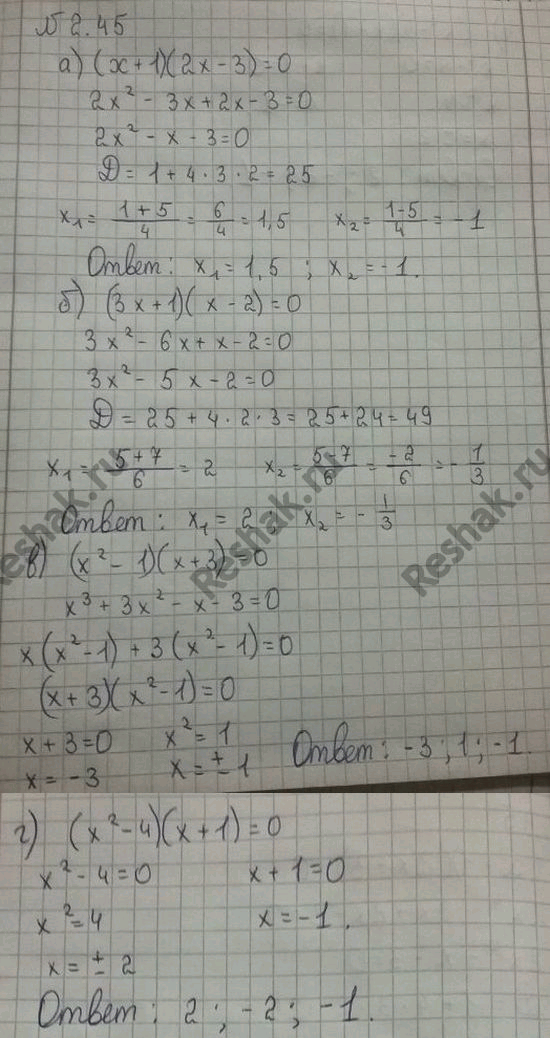 № 2.45
а) (x+1)(2x-3)=0
2x² - 3x + 2x - 3 = 0
2x² - x - 3 = 0
D = 1 + 4 · 3 · 2 = 25
x₁ = (1+5)/4 = 6/4 = 1,5 x₂ = (1-5)/4 = -1
Ответ: x₁ = 1,5 ; x₂ = -1.
б) (3x+1)(x-2)=0
3x² - 6x + x - 2 = 0
3x² - 5x - 2 = 0
D = 25 + 4 · 2 · 3 = 25 + 24 = 49
x₁ = (5+7)/6 = 2 x₂ = (5-7)/6 = -2/6 = -1/3
Ответ: x₁ = 2 ; x₂ = -1/3
в) (x²-1)(x+3)=0
x³ + 3x² - x - 3 = 0
x(x²-1) + 3(x²-1) = 0
(x+3)(x²-1) = 0
x+3=0 x² = 1 Ответ: -3 ; 1 ; -1.
x = -3 x = ±1
г) (x²-4)(x+1)=0
x²-4=0 x+1=0
x²=4 x=-1.
x = ±2
Ответ: 2 ; -2 ; -1.
Reshak.ru
Reshak.ru
Reshak.ru